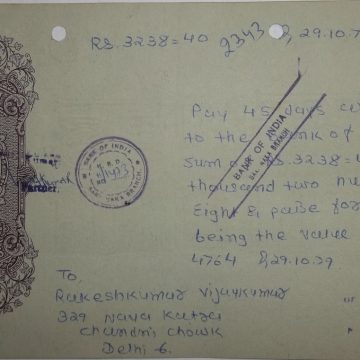 Rs. 3238=40 2343 29.10.7
Pay 45 days
to the Bank of
sum of Rs. 3238=
thousand two hu
Eight & paise for
being the value
4764 29.10.79
BANK OF INDIA
BRANCH
BANK OF INDIA
BRANCH
Partner.
To,
Rakeshkumar Vijaykumar
329 Nava Katra
Chandni Chowk
Delhi 6.